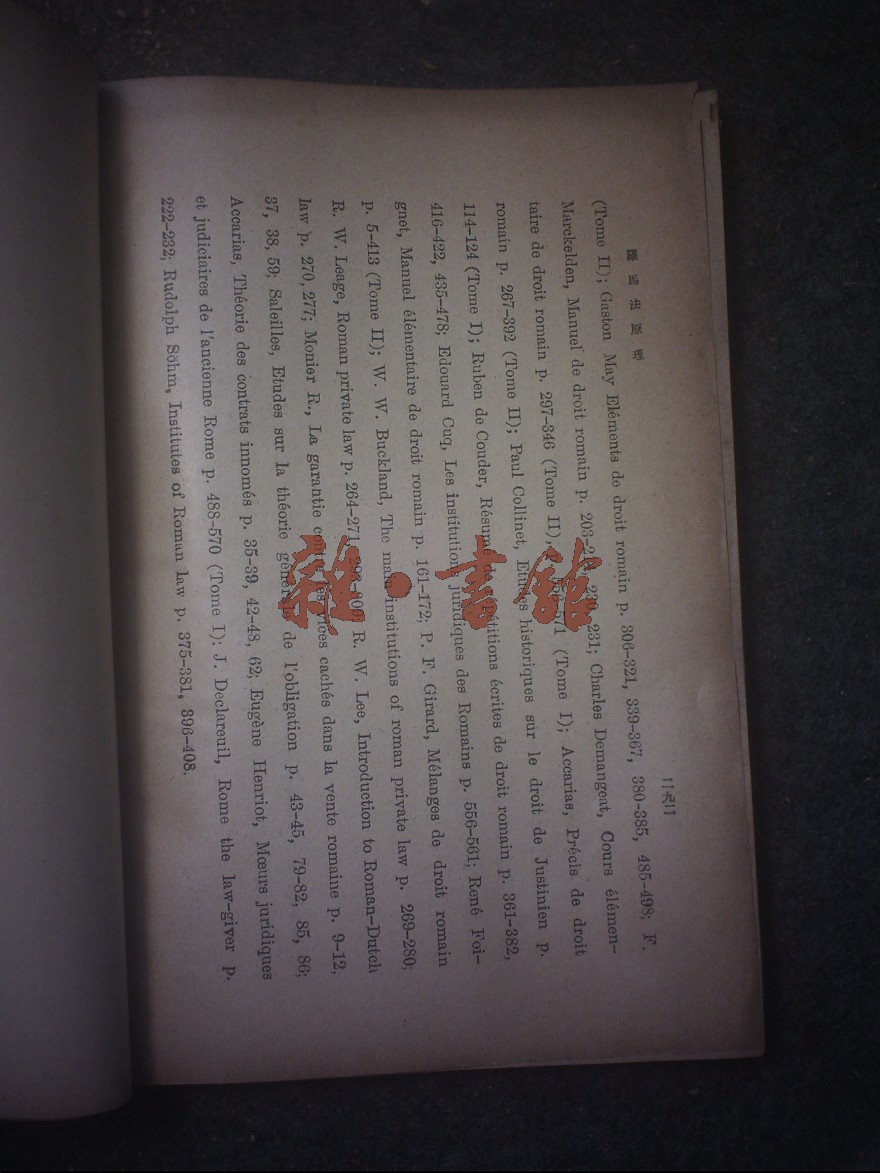 羅馬法原理
(Tome II); Gaston May Eléments de droit romain p. 306-321, 339-367, 380-385, 485-498; F.
Marckelden, Manuel de droit romain p. 203- 231; Charles Demangeat, Cours élémen-
taire de droit romain p. 297-346 (Tome II), (Tome I); Accarias, Précis de droit
romain p. 267-392 (Tome II); Paul Collinet, Etudes historiques sur le droit de Justinien p.
114-124 (Tome I); Ruben de Couder, Résumé de répétitions écrites de droit romain p. 361-382,
416-422, 435-478; Edouard Cuq, Les institutions juridiques des Romains p. 556-561; René Foi-
gnet, Manuel élémentaire de droit romain p. 161-172; P. F. Girard, Mélanges de droit romain
p. 5-413 (Tome II); W. W. Buckland, The main institutions of roman private law p. 269-280;
R. W. Leage, Roman private law p. 264-271, R. W. Lee, Introduction to Roman-Dutch
law p. 270, 277; Monier R., La garantie contre les vices cachés dans la vente romaine p. 9-12,
37, 38, 59; Saleilles, Etudes sur la théorie générale de l'obligation p. 43-45, 79-82, 85, 86;
Accarias, Théorie des contrats innomés p. 35-39, 42-48, 62; Eugène Henriot, Mœurs juridiques
et judiciaires de l'ancienne Rome p. 488-570 (Tome I); J. Declareuil, Rome the law-giver p.
222-232; Rudolph Söhm, Institutes of Roman law p. 375-381, 396-408.